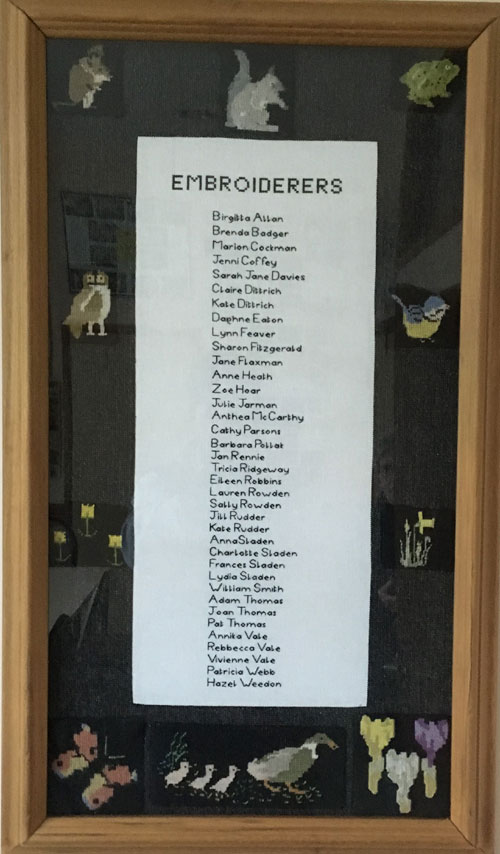 EMBROIDERERS
Birgitta Allan
Brenda Badger
Marion Cockman
Jenni Coffey
Sarah Jane Davies
Claire Dittrich
Kate Dittrich
Daphne Eaton
Lynn Feaver
Sharon Fitzgerald
Jane Flaxman
Anne Heath
Zoe Hoar
Julie Jarman
Anthea McCarthy
Cathy Parsons
Barbara Pollak
Jan Rennie
Tricia Ridgeway
Eileen Robbins
Lauren Rowden
Sally Rowden
Jill Rudder
Kate Rudder
Anna Sladen
Charlotte Sladen
Frances Sladen
Lydia Sladen
William Smith
Adam Thomas
Joan Thomas
Pat Thomas
Annika Vale
Rebbecca Vale
Vivienne Vale
Patricia Webb
Hazel Weedon